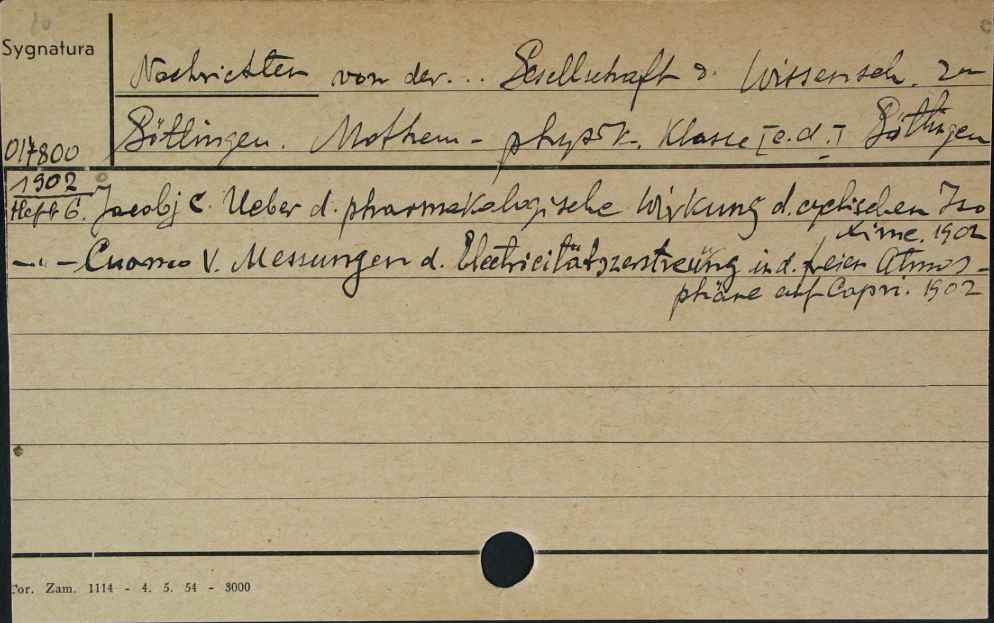 Sygnatura
Nachrichten von der... Gesellschaft d. Wissensch. zu
017800 Göttingen. Mathem- physik. Klasse [e.d.] Göttingen
1902
Heft 6. Jacobj C. Ueber d. pharmakologische Wirkung d. cyclischen Iso
xime. 1902
-"- Cuomo V. Messungen d. Electricitätszerstreüng in d. freien Atmos-
phäre auf Capri. 1902
Tor. Zam. 1114 - 4. 5. 54 - 3000